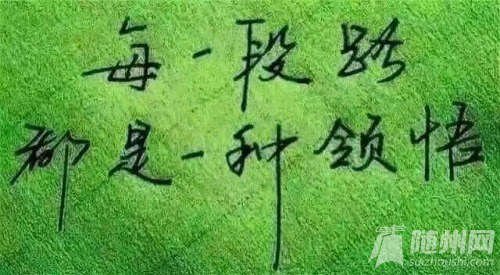 每一段路
都是一种领悟
随州网
suizhoushi.com